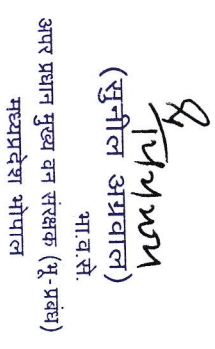 (सुनील अग्रवाल)
भा.व.से.
अपर प्रधान मुख्य वन संरक्षक (भू-प्रबंध)
मध्यप्रदेश भोपाल